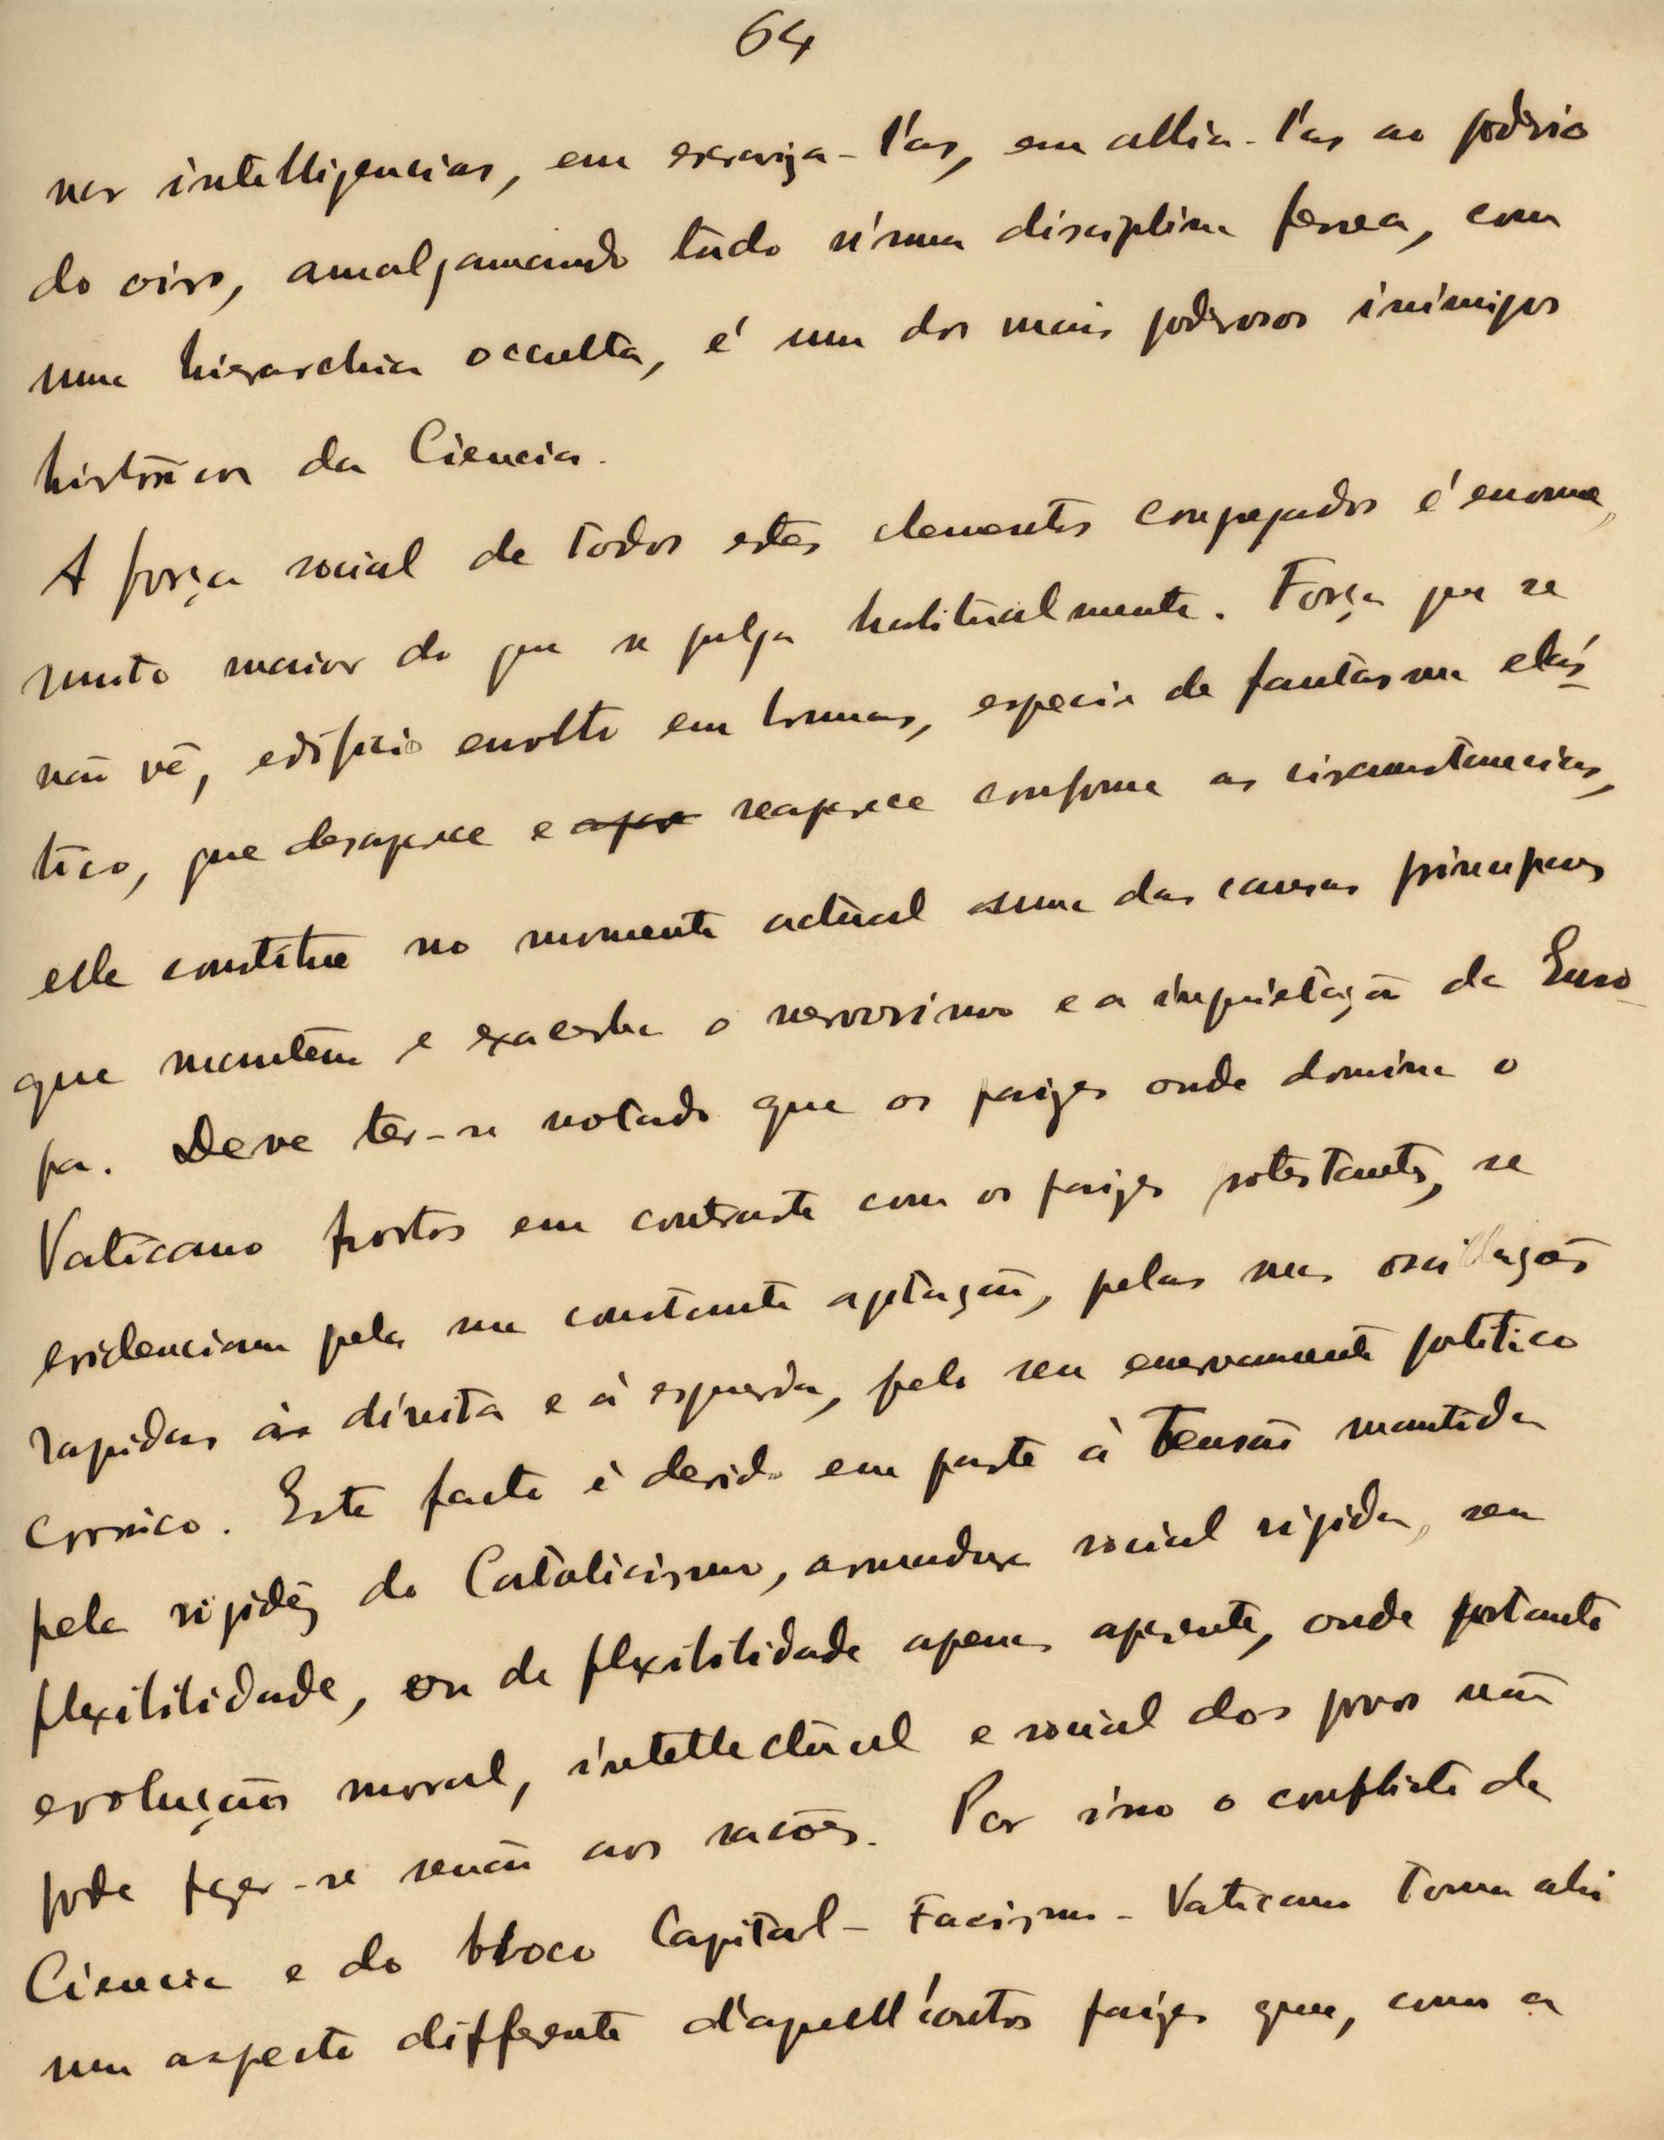 64
nar intelligencias, em escraviza-l'as, em allia-l'as ao poderio
do oiro, amalgamando tudo n'uma disciplina ferrea, com
uma hierarchia occulta, é um dos mais poderosos inimigos
históricos da Ciencia.
A força social de todos estes elementos congregados é enorme,
muito maior do que se julga habitualmente. Força que se
não vê, edificio envolto em brumas, especie de fantasma elás-
tico, que desaparece e apar reaparece conforme as circumstancias,
elle constitue no momento actual uma das causas principaes
que mantêm e exacerba o nervosismo e a inquietação da Euro-
pa. Deve ter-se notado que os paizes onde domina o
Vaticano postos em contraste com os paizes protestantes, se
evidenciam pela sua constante agitação, pelas suas oscillações
rapidas á direita e á esquerda, pelo seu enervamento politico
cronico. Este facto é devido em parte à tensão mantida
pela rigidez do Catolicismo, armadura social rigida, sem
flexibilidade, ou de flexibilidade apenas aparente, onde portanto
evolução moral, intellectual e social dos povos não
pode fazer-se senão aos sacões. Por isso o conflicto da
Ciencia e do bloco Capital-Facismo-Vaticano toma ahi
um aspecto differente d'aquell'outros paizes que, com a